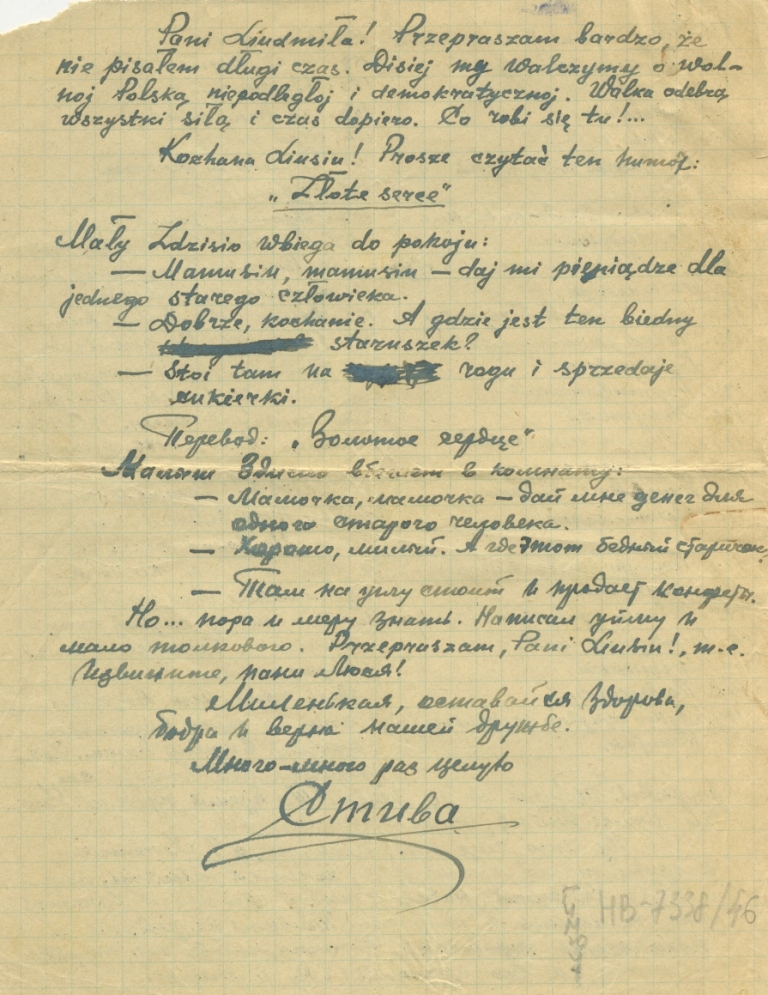 Pani Liudmiła! Przepraszam bardzo, że
nie pisałem długi czas. Disiej my walczymy o wol-
noj Polską, niepodległoj i demokratycznoj. Walka odebrą
wszystki siłą i czas dopiero. Co robi się tu!...
Kochana Liusiu! Prosze czytać ten humor:
„Złote serce"
Mały Zdzisio wbiega do pokoju:
— Mamusiu, mamusiu – daj mi pieniądze dla
jednego starego człowieka.
— Dobrze, kochanie. A gdzie jest ten biedny
staruszek?
— Stoi tam na rogu i sprzedaje
cukierki.
Перевод: „Золотое сердце"
Малыш Здисио вбегает в комнату:
— Мамочка, мамочка – дай мне денег для
одного старого человека.
— Хорошо, милый. А где этот бедный старичок
— Там на углу стоит и продает конфеты.
Но... пора и меру знать. Написал уйму и
мало толкового. Przepraszam, Pani Liusiu!, т.е.
Извините, пани Люся!
Миленькая, оставайся здорова,
бодра и верна нашей дружбе.
Много-много раз целую
Стива
НВ-7338/46